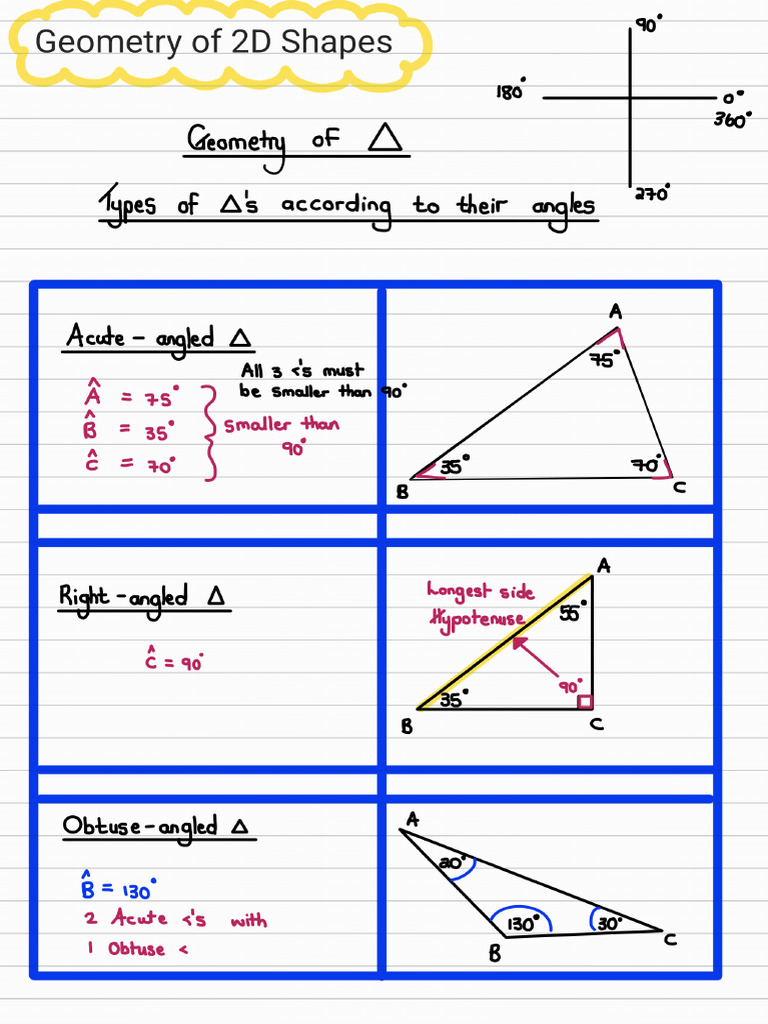 Geometry of 2D Shapes
90°
180°
0°
360°
270°
Geometry of △
Types of △'s according to their angles
Acute - angled △
All 3 <'s must
be smaller than 90°
Â = 75°
B̂ = 35°
Ĉ = 70°
smaller than
90°
A
75°
35°
70°
B
C
Right - angled △
Ĉ = 90°
A
Longest side
Hypotenuse
55°
90°
35°
B
C
Obtuse - angled △
B̂ = 130°
2 Acute <'s with
1 Obtuse <
A
20°
130°
30°
B
C